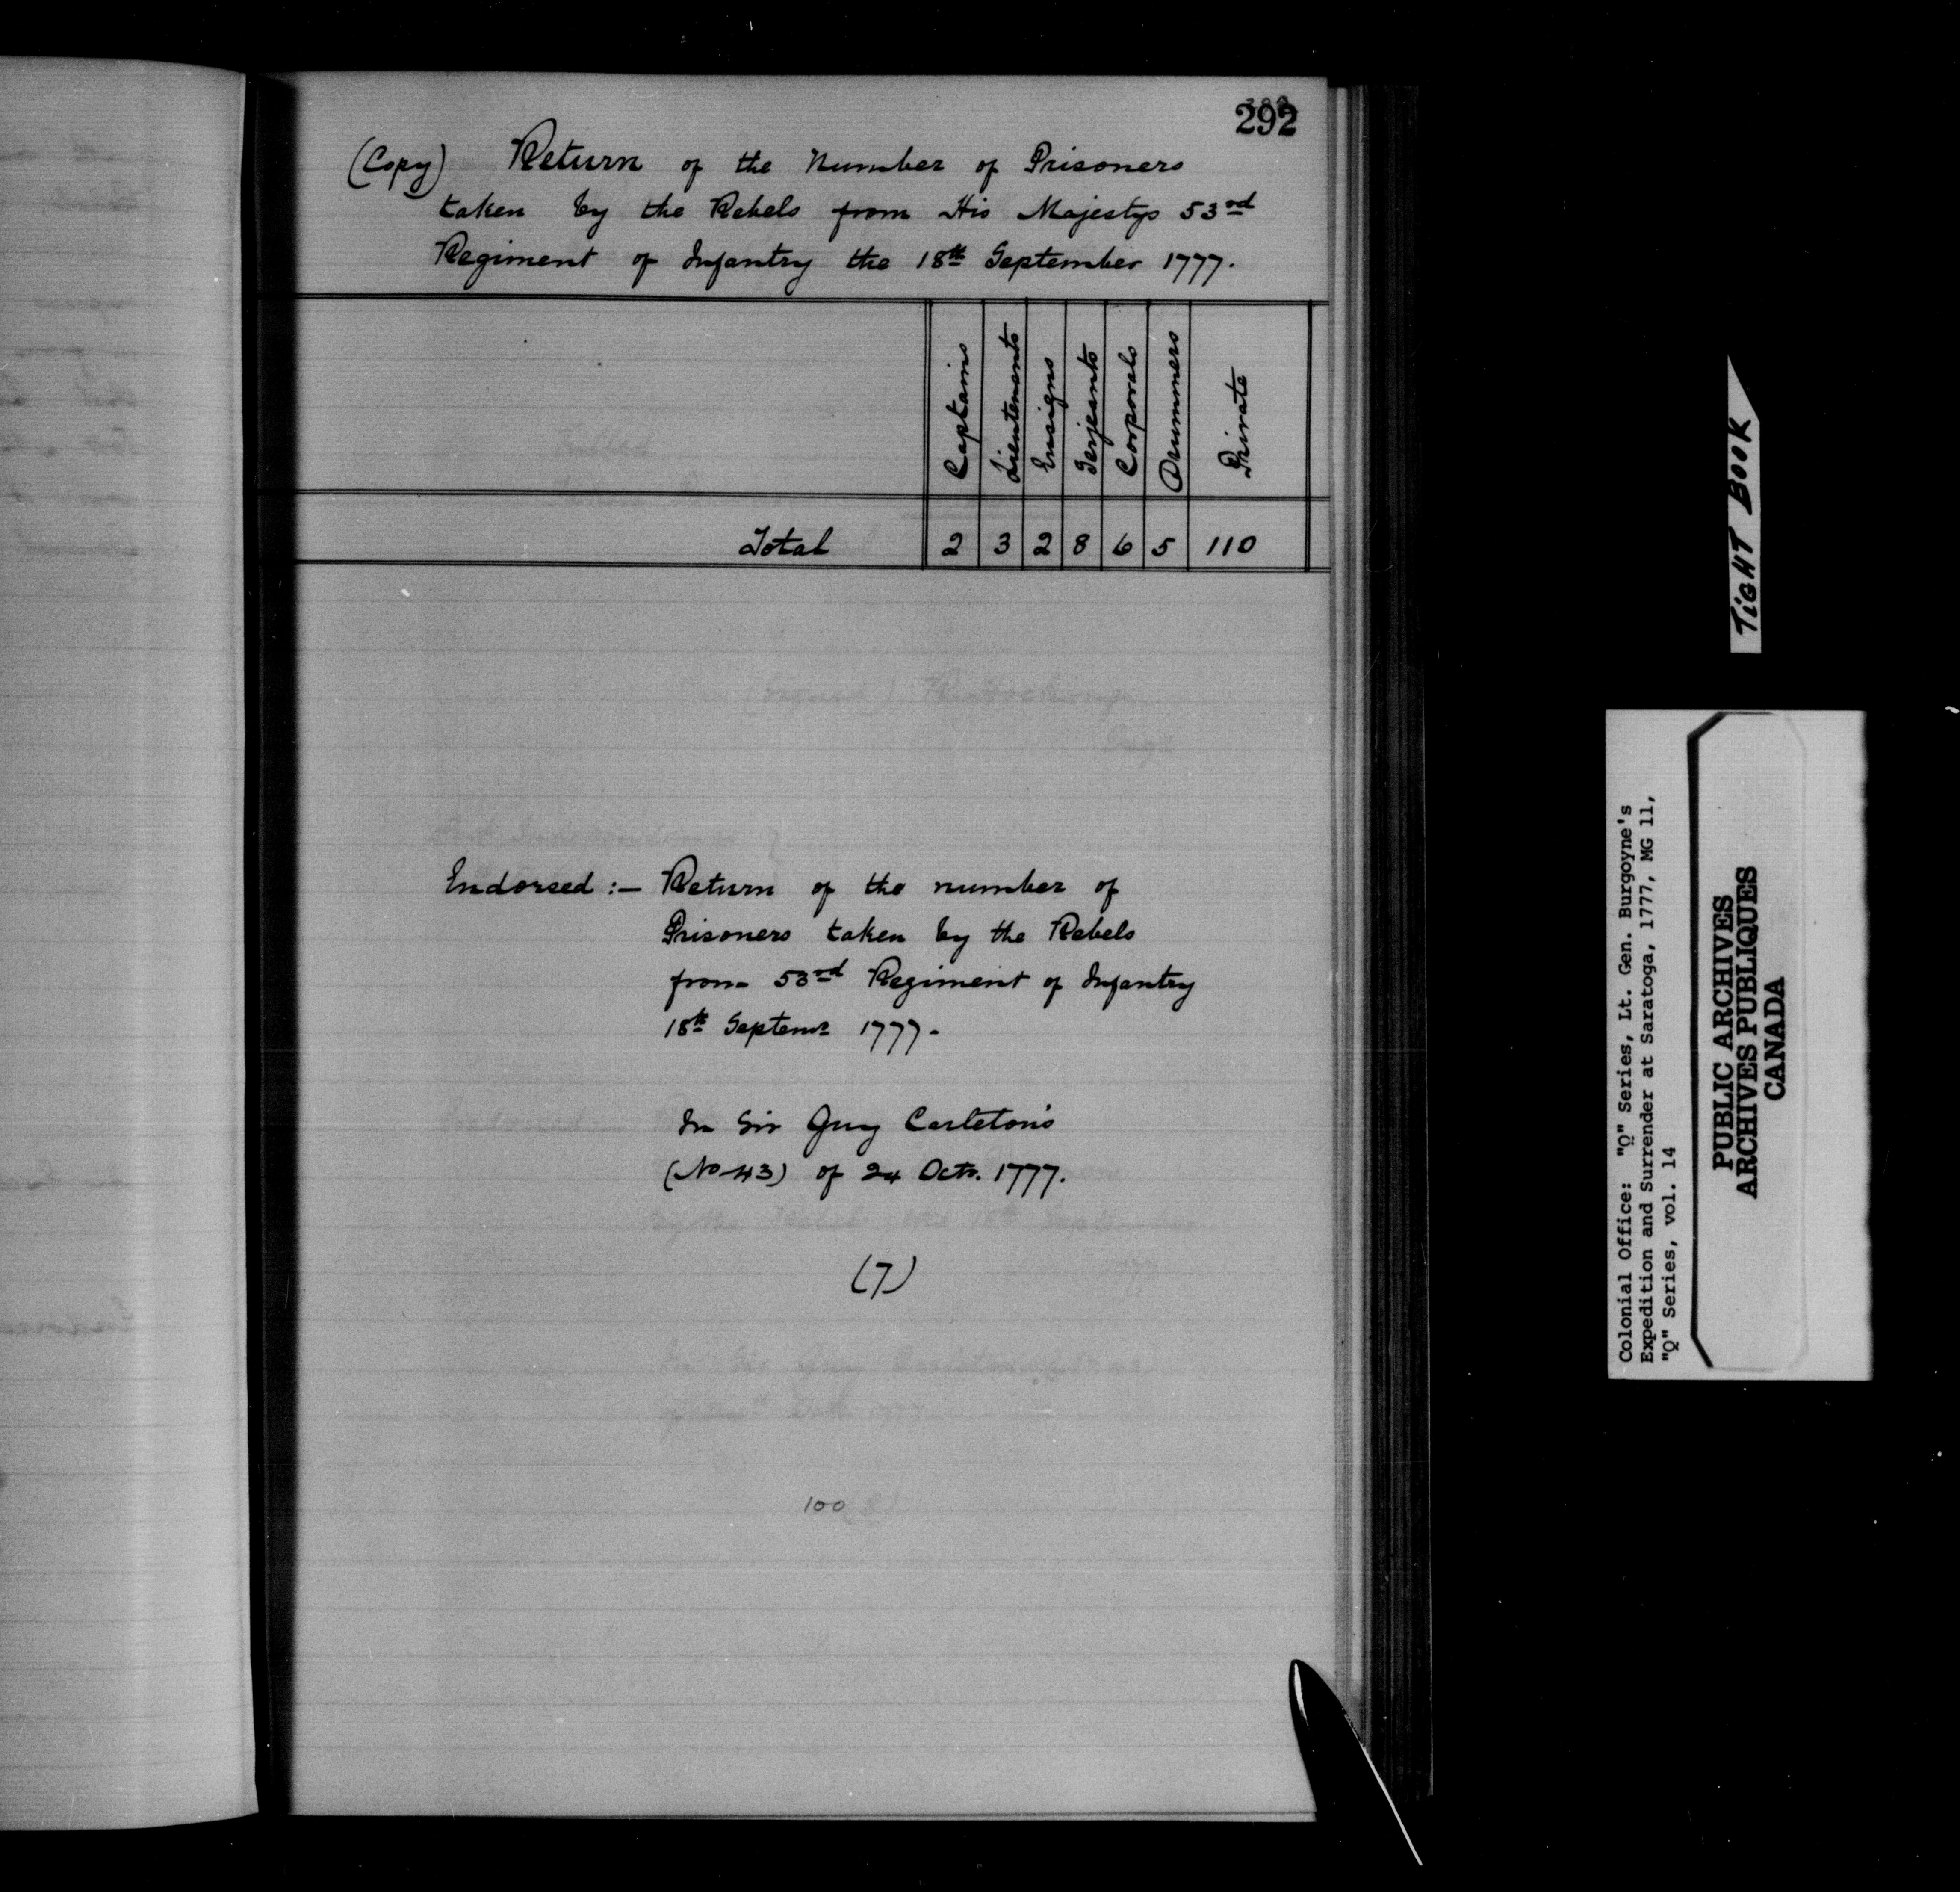 292
(Copy) Return of the Number of Prisoners
taken by the Rebels from His Majestys 53rd
Regiment of Infantry the 18th September 1777.
Captains Lieutenants Ensigns Serjeants Corporals Drummers Private
Total 2 3 2 8 6 5 110
Endorsed:— Return of the number of
Prisoners taken by the Rebels
from 53rd Regiment of Infantry
18th Septemr 1777-
In Sir Guy Carleton's
(No 43) of 24 Octr. 1777.
(7)
100
TIGHT BOOK
Colonial Office: "Q" Series, Lt. Gen. Burgoyne's
Expedition and Surrender at Saratoga, 1777, MG 11,
"Q" Series, vol. 14
PUBLIC ARCHIVES
ARCHIVES PUBLIQUES
CANADA